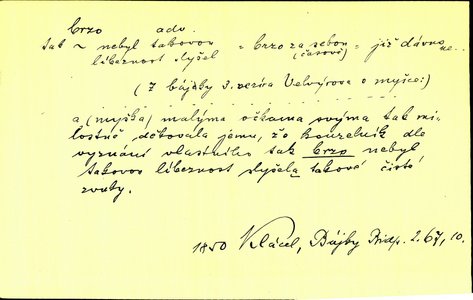 brzo adv.
tak ~ nebyl takovou = brzo za sebou = již dávno ne..
líbeznost slyšel (časově)
(Z bájky 3. verše o myšce:)
a (myška) malýma očkama svýma tak mi-
lostně děkovala jemu, že kouzelník dle
vyznání vlastního tak brzo nebyl
takovou líbeznost slyšel, a takové čisté
zvuky.
1850 Klácel, Bájky Bidp. 2. 67, 10.